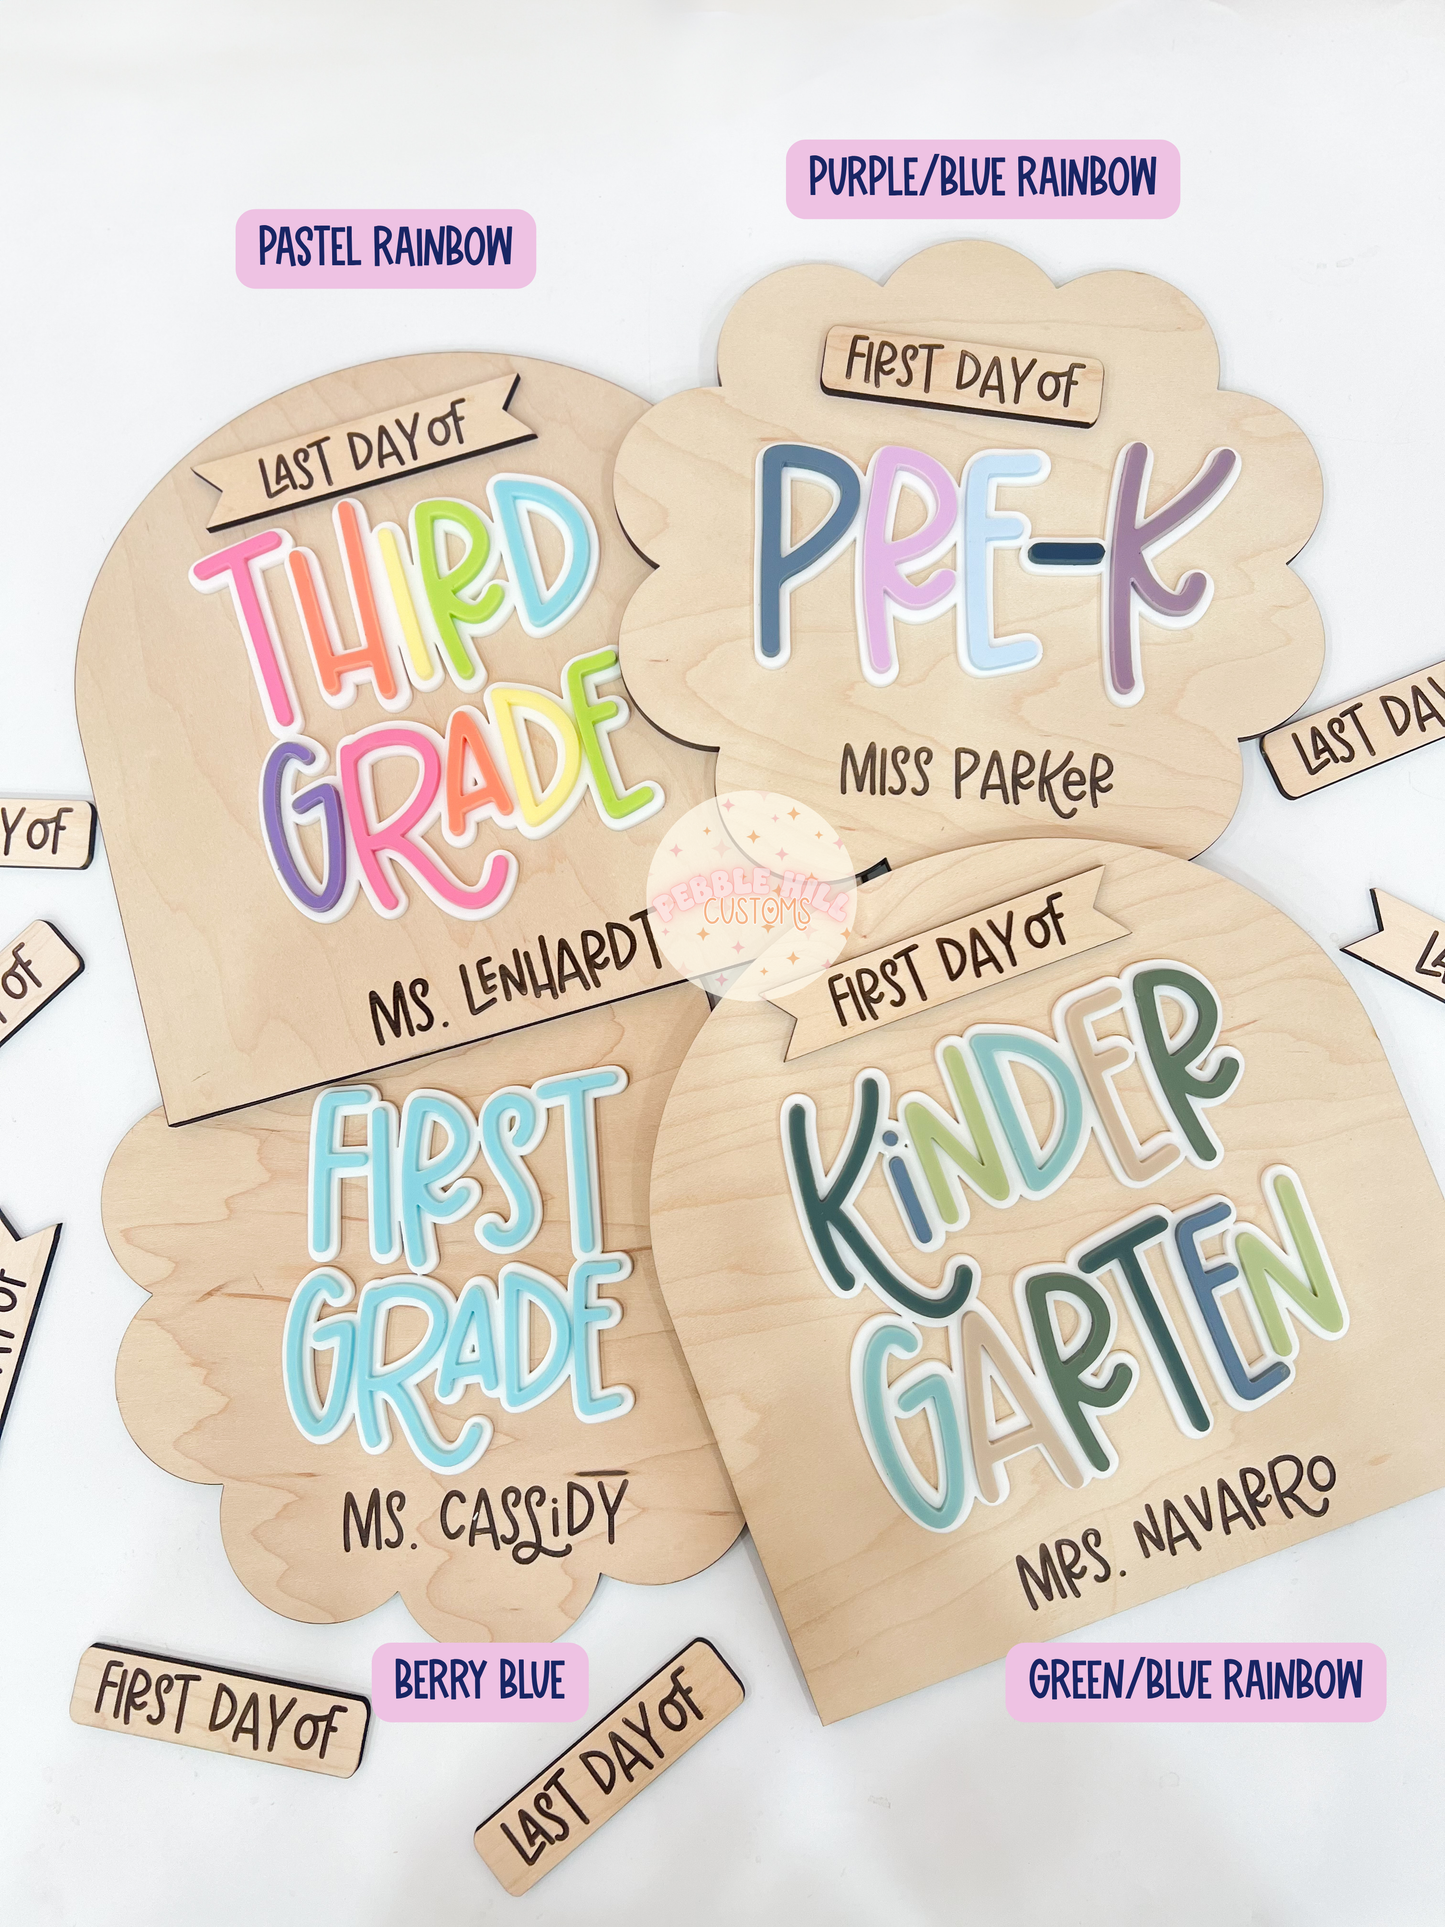 PURPLE/BLUE RAINBOW
PASTEL RAINBOW
FIRST DAY OF
PRE-K
MISS PARKER
LAST DAY OF
THIRD
GRADE
MS. LENHARDT
LAST DA
Y OF
OF
PEBBLE HILL
CUSTOMS
FIRST DAY OF
KiNDER
GARTEN
MRS. NAVARRO
FIRST
GRADE
MS. CASSiDY
LA
AY OF
BERRY BLUE
GREEN/BLUE RAINBOW
FIRST DAY OF
LAST DAY OF